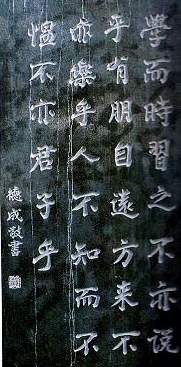 學而時習之不亦説
乎有朋自遠方来不
亦樂乎人不知而不
愠不亦君子乎
德成敬書